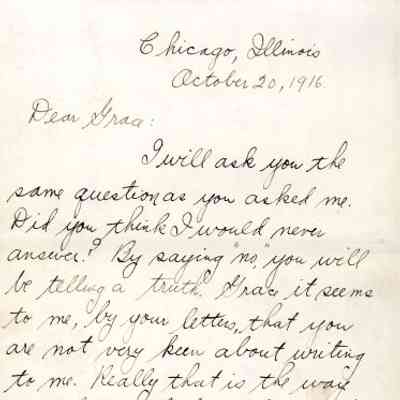 Chicago, Illinois
October 20, 1916.
Dear Grace:
I will ask you the
same question as you asked me.
Did you think I would never
answer? By saying "no," you will
be telling a truth. Grace, it seems
to me, by your letters, that you
are not very keen about writing
to me. Really that is the way